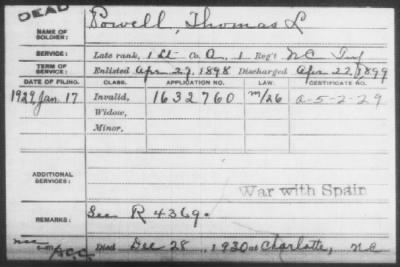 DEAD
NAME OF SOLDIER: Powell, Thomas L
SERVICE: Late rank, 1 Lt Co. A, 1 Reg't NC Inf
TERM OF SERVICE: Enlisted Apr 27, 1898 Discharged Apr 22, 1899
DATE OF FILING. CLASS. APPLICATION NO. LAW. CERTIFICATE NO.
1929 Jan 17 Invalid, 1632760 m/26 a-5-2-29
Widow,
Minor,
ADDITIONAL SERVICES:
War with Spain
REMARKS: See R 4369.
Died Dec 28, 1930 at Charlotte, NC